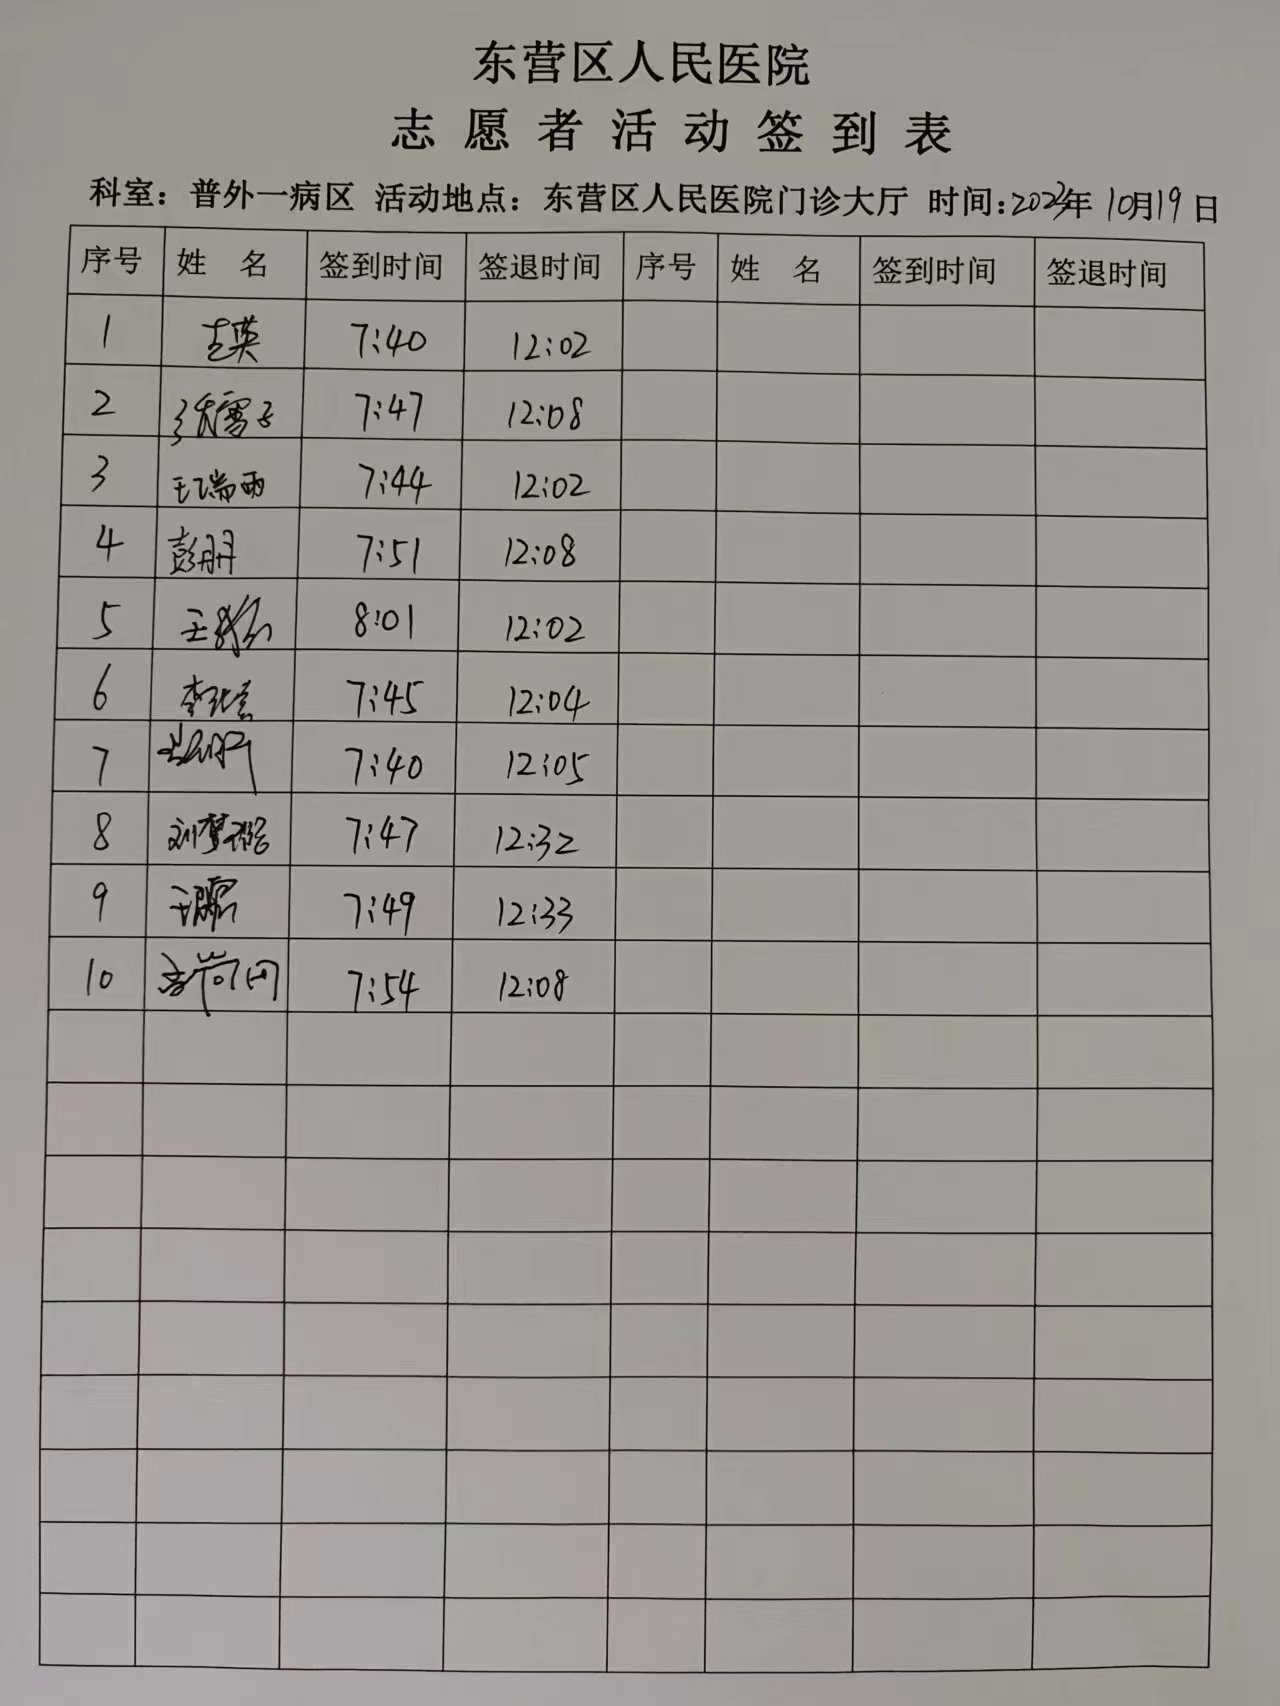 东营区人民医院
志愿者活动签到表
科室：普外一病区 活动地点：东营区人民医院门诊大厅 时间：年 10月19日
序号 姓 名 签到时间 签退时间 序号 姓 名 签到时间 签退时间
1 7:40 12:02
2 7:47 12:08
3 王瑞雨 7:44 12:02
4 彭丹丹 7:51 12:08
5 王 8:01 12:02
6 李 7:45 12:04
7 7:40 12:05
8 刘梦璐 7:47 12:32
9 7:49 12:33
10 7:54 12:08